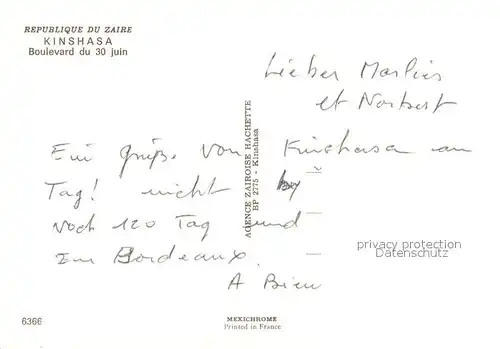 REPUBLIQUE DU ZAIRE
KINSHASA
Boulevard du 30 juin
Lieber Marlies
et Norbert
Ein grüße von Kinshasa an
Tag! nicht
Noch 120 Tag und
Ein Bordeaux.
A Bieu
AGENCE ZAIROISE HACHETTE
BP 2775 - Kinshasa
privacy protection
Datenschutz
6366
MEXICHROME
Printed in France